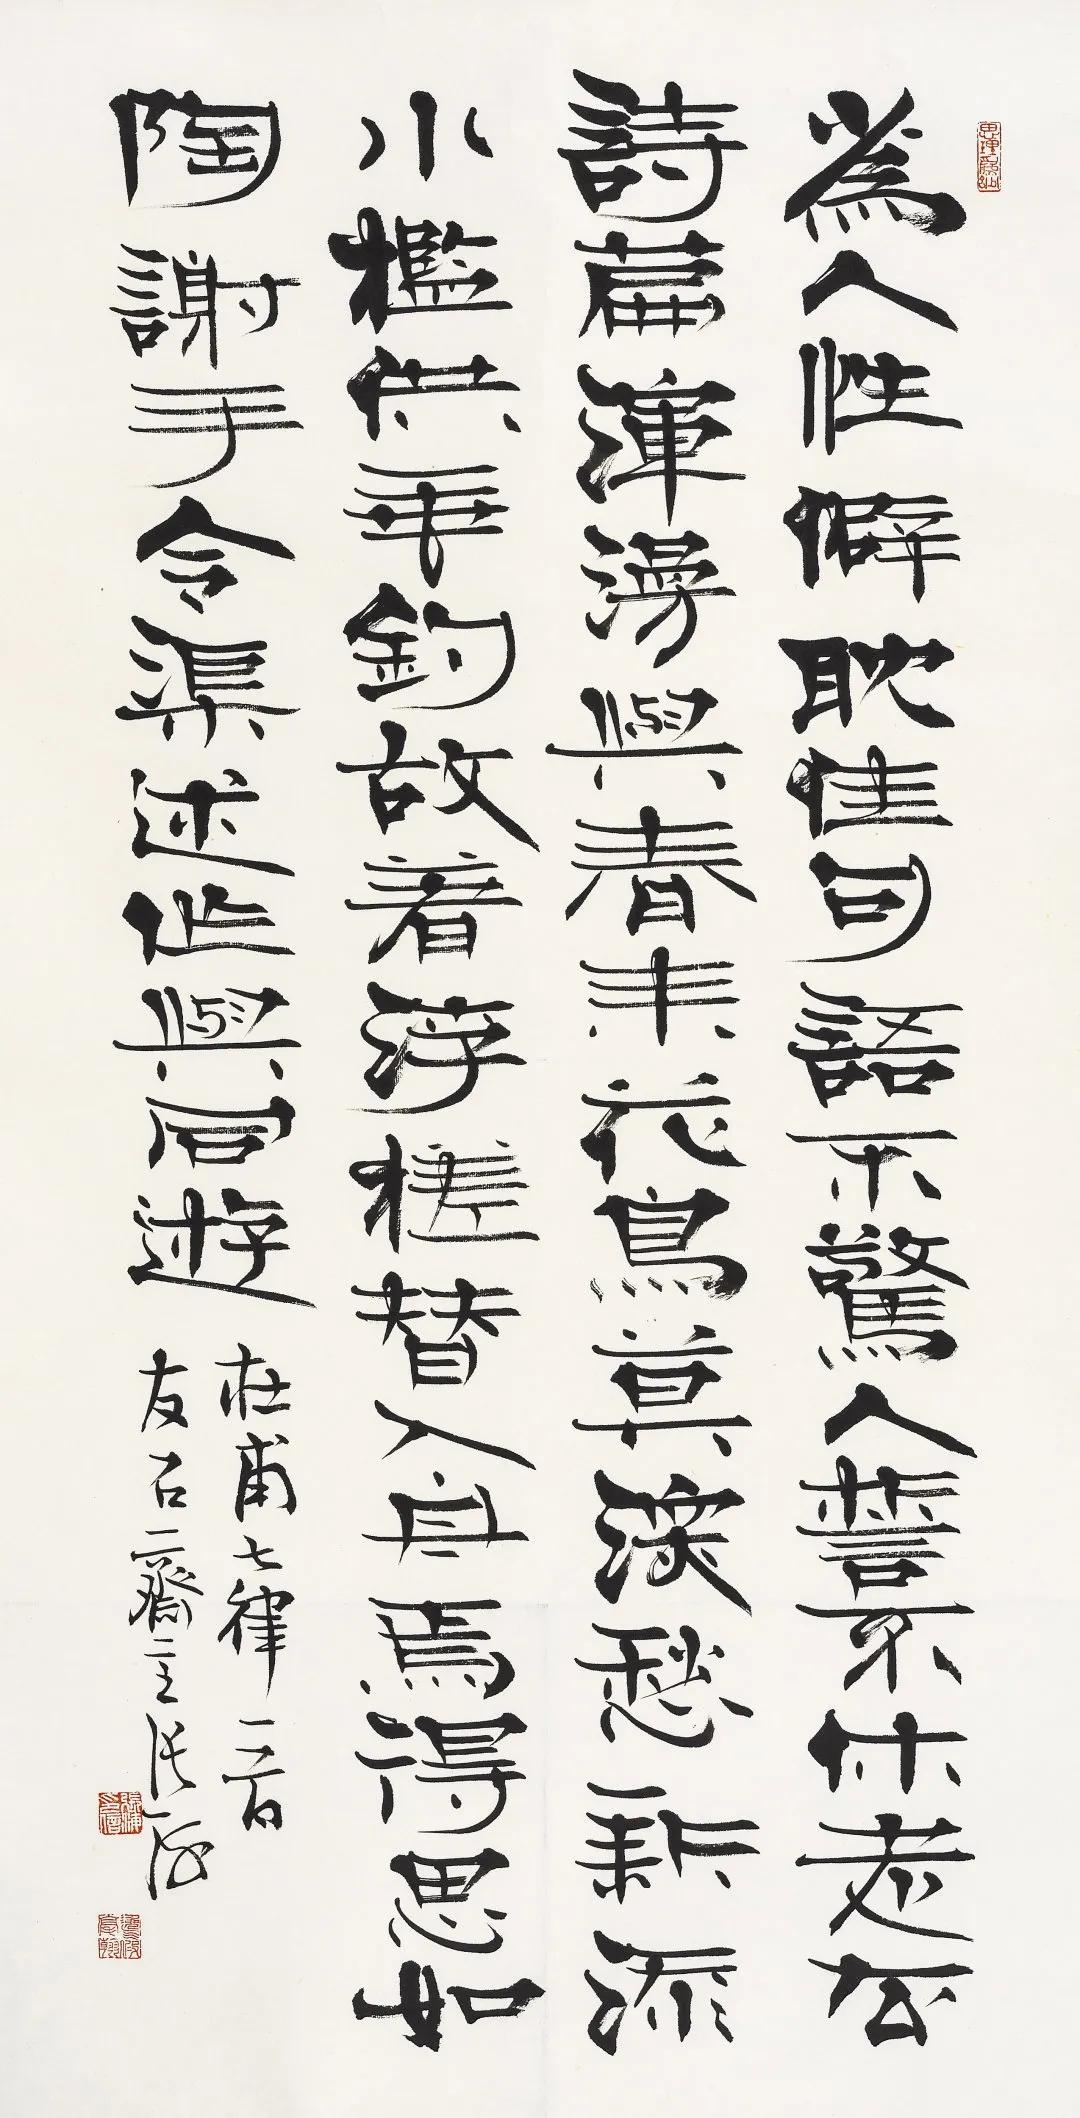 為人性僻耽佳句語不驚人誓不休老去
詩篇渾漫與春來花鳥莫深愁新添
小檻供垂釣故著浮槎替入舟焉得思如
陶謝手令渠述作與同遊
杜甫七律一首
友石齋主張海